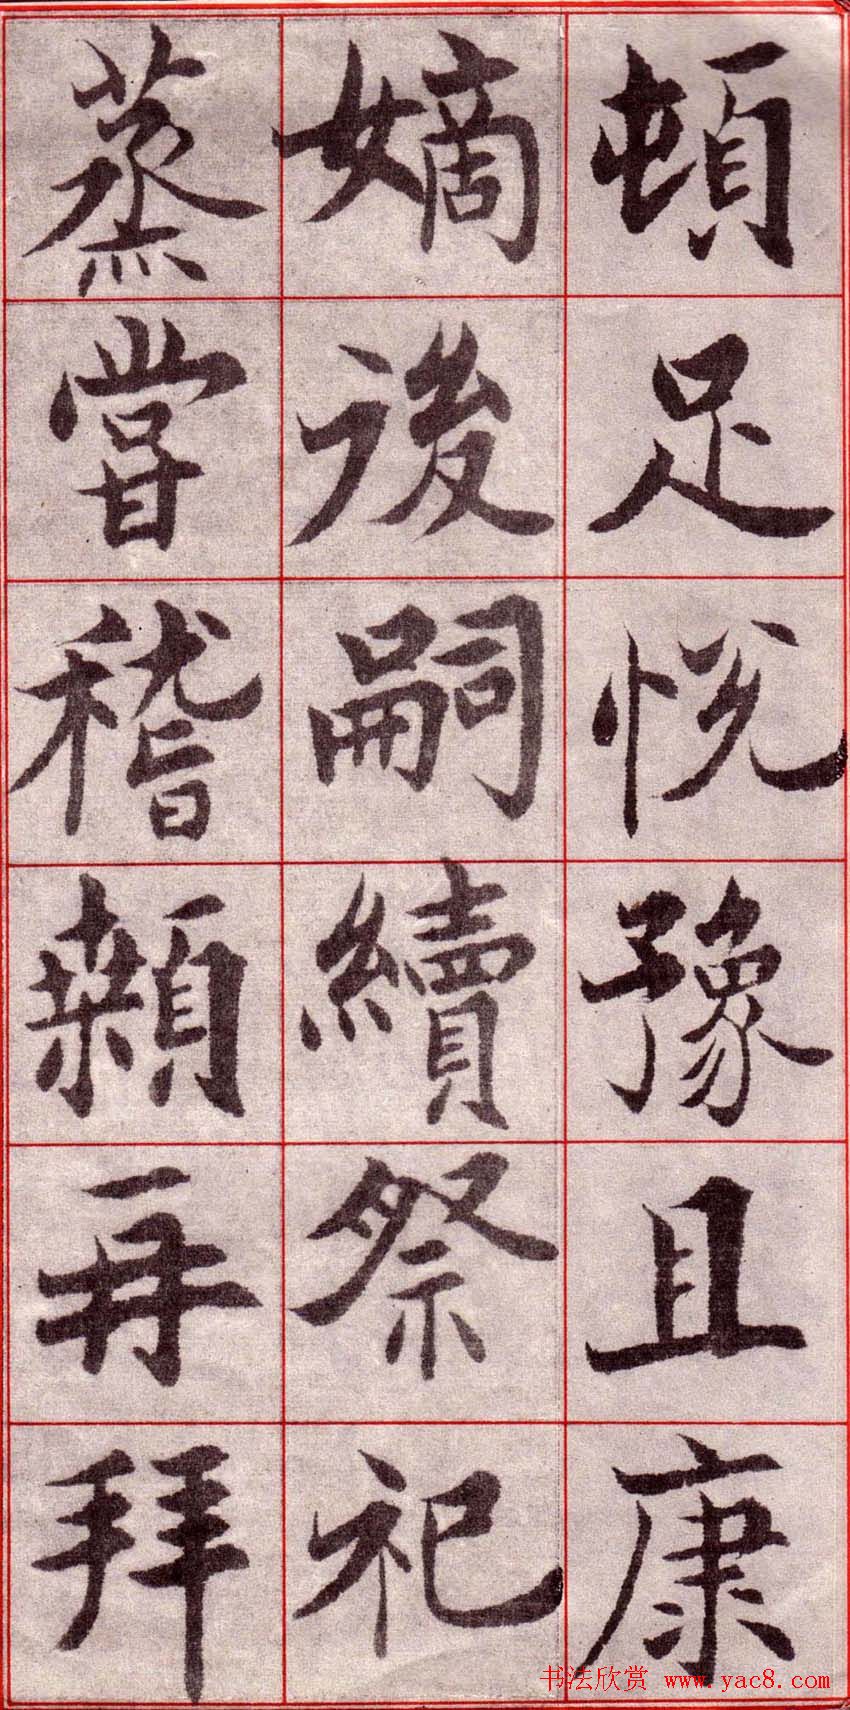 頓足悅豫且康
嫡後嗣續祭祀
蒸嘗稽顙再拜
书法欣赏 www.yac8.com